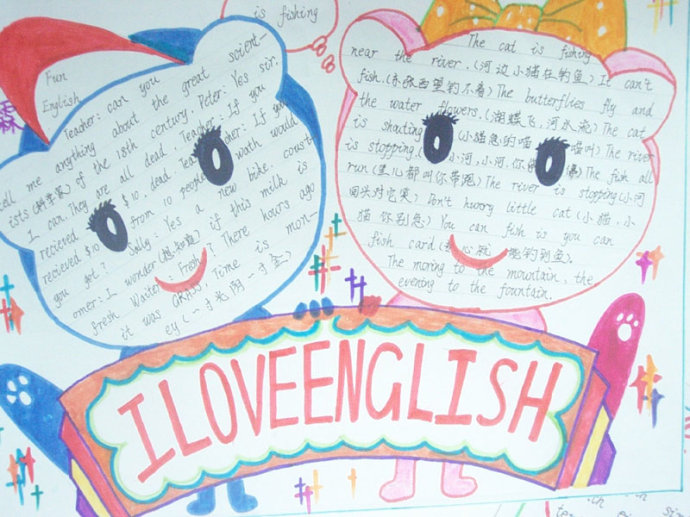 is fishing
Fun
English
Teacher: can you
tell me anything about the great scient-
ists (科学家) of the 18th century. Peter: Yes sir.
I can. They are all dead. Teacher: If you
recieved $10 from 10 people
recieved $10 worth would
you get? Sally: Yes a new bike. coust-
omer: I wonder (想知道) if this milk is
fresh Waiter: Fresh? There hours ago
it was GRASS. Time is mon-
ey (一寸光阴一寸金)
The cat is fishing
near the river. (河边小猫在钓鱼) It can't
fish. (东张西望钓不着) The butterflies fly and
the water flowers. (蝴蝶飞,河水流) The cat
is shouting (小猫急的喵 喵叫) The river
is stopping. 小河,小河,你 The fish all
run (鱼儿都叫你带跑) The river is stopping (小河
回头对它笑) Don't huory little cat (小猫,小
猫 你别急) You can fish is you can
fish card 能钓到鱼).
The moring to the mountain, the
evening to the fountain.
ILOVEENGLISH